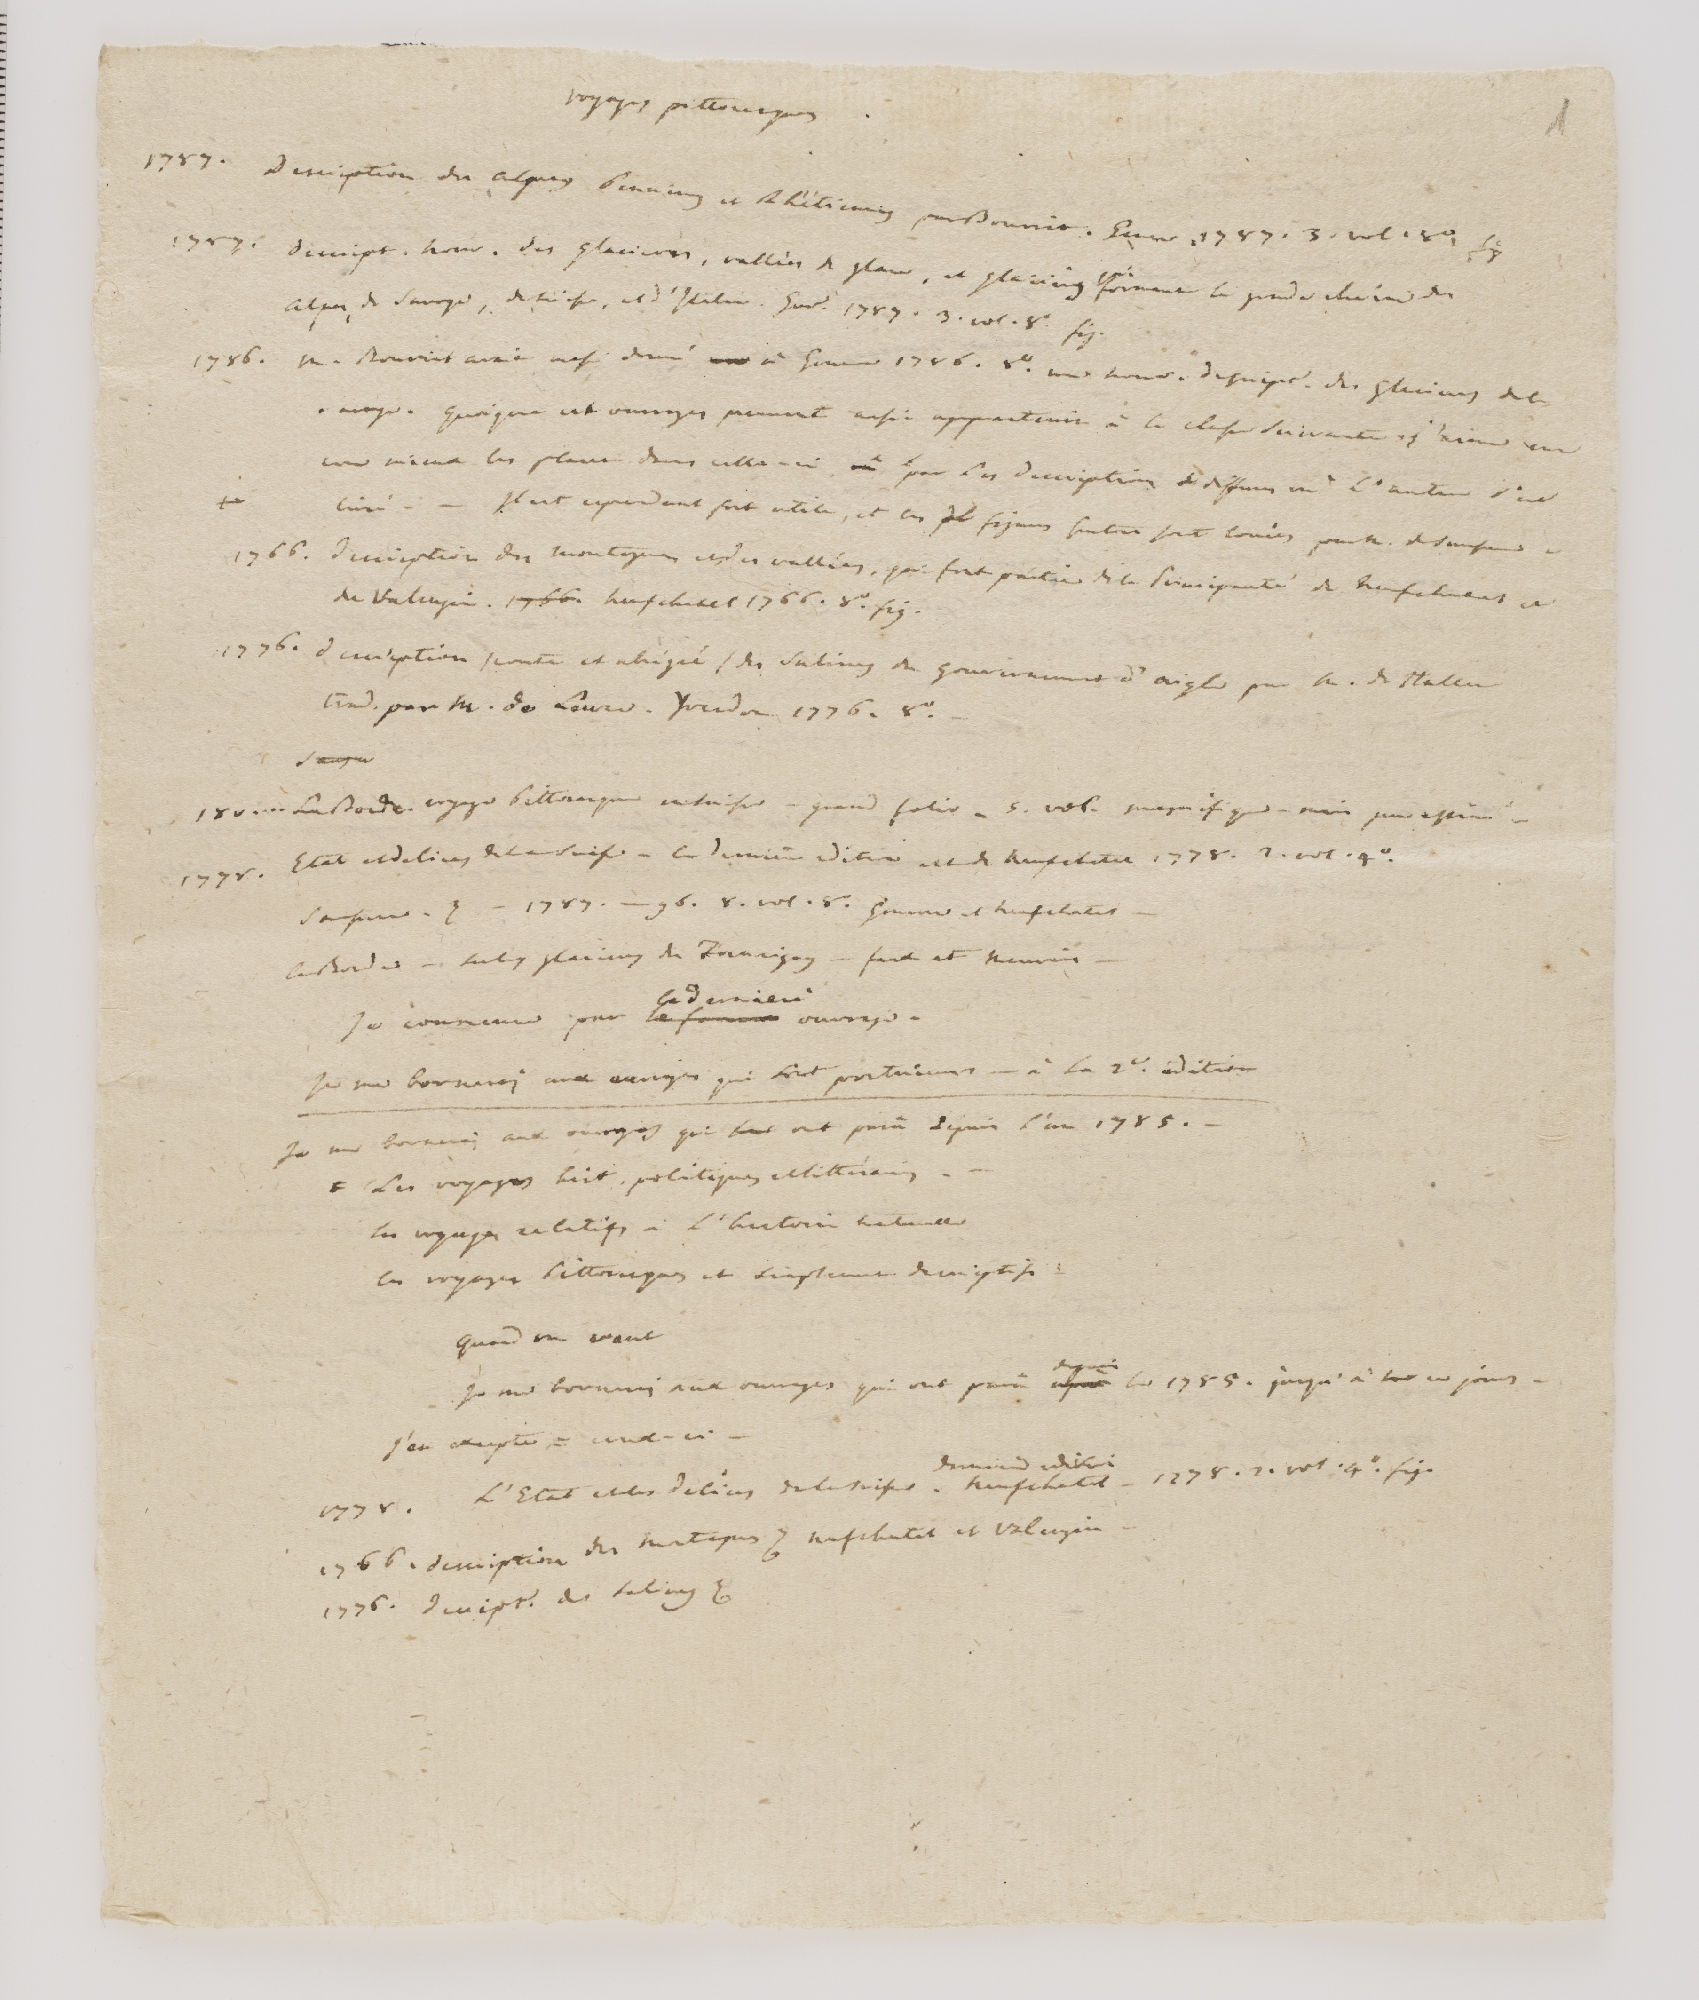 voyages pittoresques .
1
1787. Description des alpes Pennines et Rhétiennes par Bourrit. Geneve 1787. 3. vol. 8º. fig
1787. descript. nouv. des glacieres, vallées de glace, et glaciers qui forment la grande chaine des
alpes de Savoye, de suisse, et d'Italie. Genev. 1787. 3. vol. 8º. fig.
1786. M. Bourrit avait aussi donné à Geneve 1786. 8º. une nouv. descript. des glacieres de la
savoye. quoique ces ouvrages peuvent aussi appartenir à la classe suivante j'aime
mieux les placer dans celle-ci par les descriptions l'auteur s'est
livré - - Il est cependant fort utile, et les figures sont fort louées par M. de Saussure
1766. description des montagnes et des vallées, qui font partie de la Principauté de Neufchatel et
de Valengin. 1766. Neufchatel 1766. 8º. fig.
1776. description /courte et abrégée/ des Salines du gouvernement d'aigle par M. de Haller
trad. par M. de Leuze. Yverdon 1776. 8º. -
180.... LaBorde. voyage Pittoresque en suisse - grand folio - 5. vol. magnifique - mais peu estimé -
1778. Etat et delices de la Suisse - la derniere edition est de Neufchatel 1778. 2. vol. 4º.
Saussure. - 1787. - 96. 8. vol. 8. Geneve et Neufchatel -
LaBorde - sur les glacieres -
Je commence par le dernier ouvrage.
Je me bornerai aux ouvrages qui sont postérieurs - à la 2e. édition
Je me bornerai aux ouvrages qui ont paru depuis l'an 1785. -
Les voyages hist. politiques et littéraires - -
les voyages relatifs à l'histoire naturelle
les voyages Pittoresques et simplement descriptifs -
quand on veut
Je me bornerai aux ouvrages qui ont paru depuis 1785. jusqu'à ce jour -
j'en excepte - ceux-ci -
1778. L'Etat et les delices de la suisse. derniere edition Neufchatel - 1778. 2. vol. 4º. fig.
1766. description des montagnes & neufchatel et Valengin -
1776. descript. des salines &